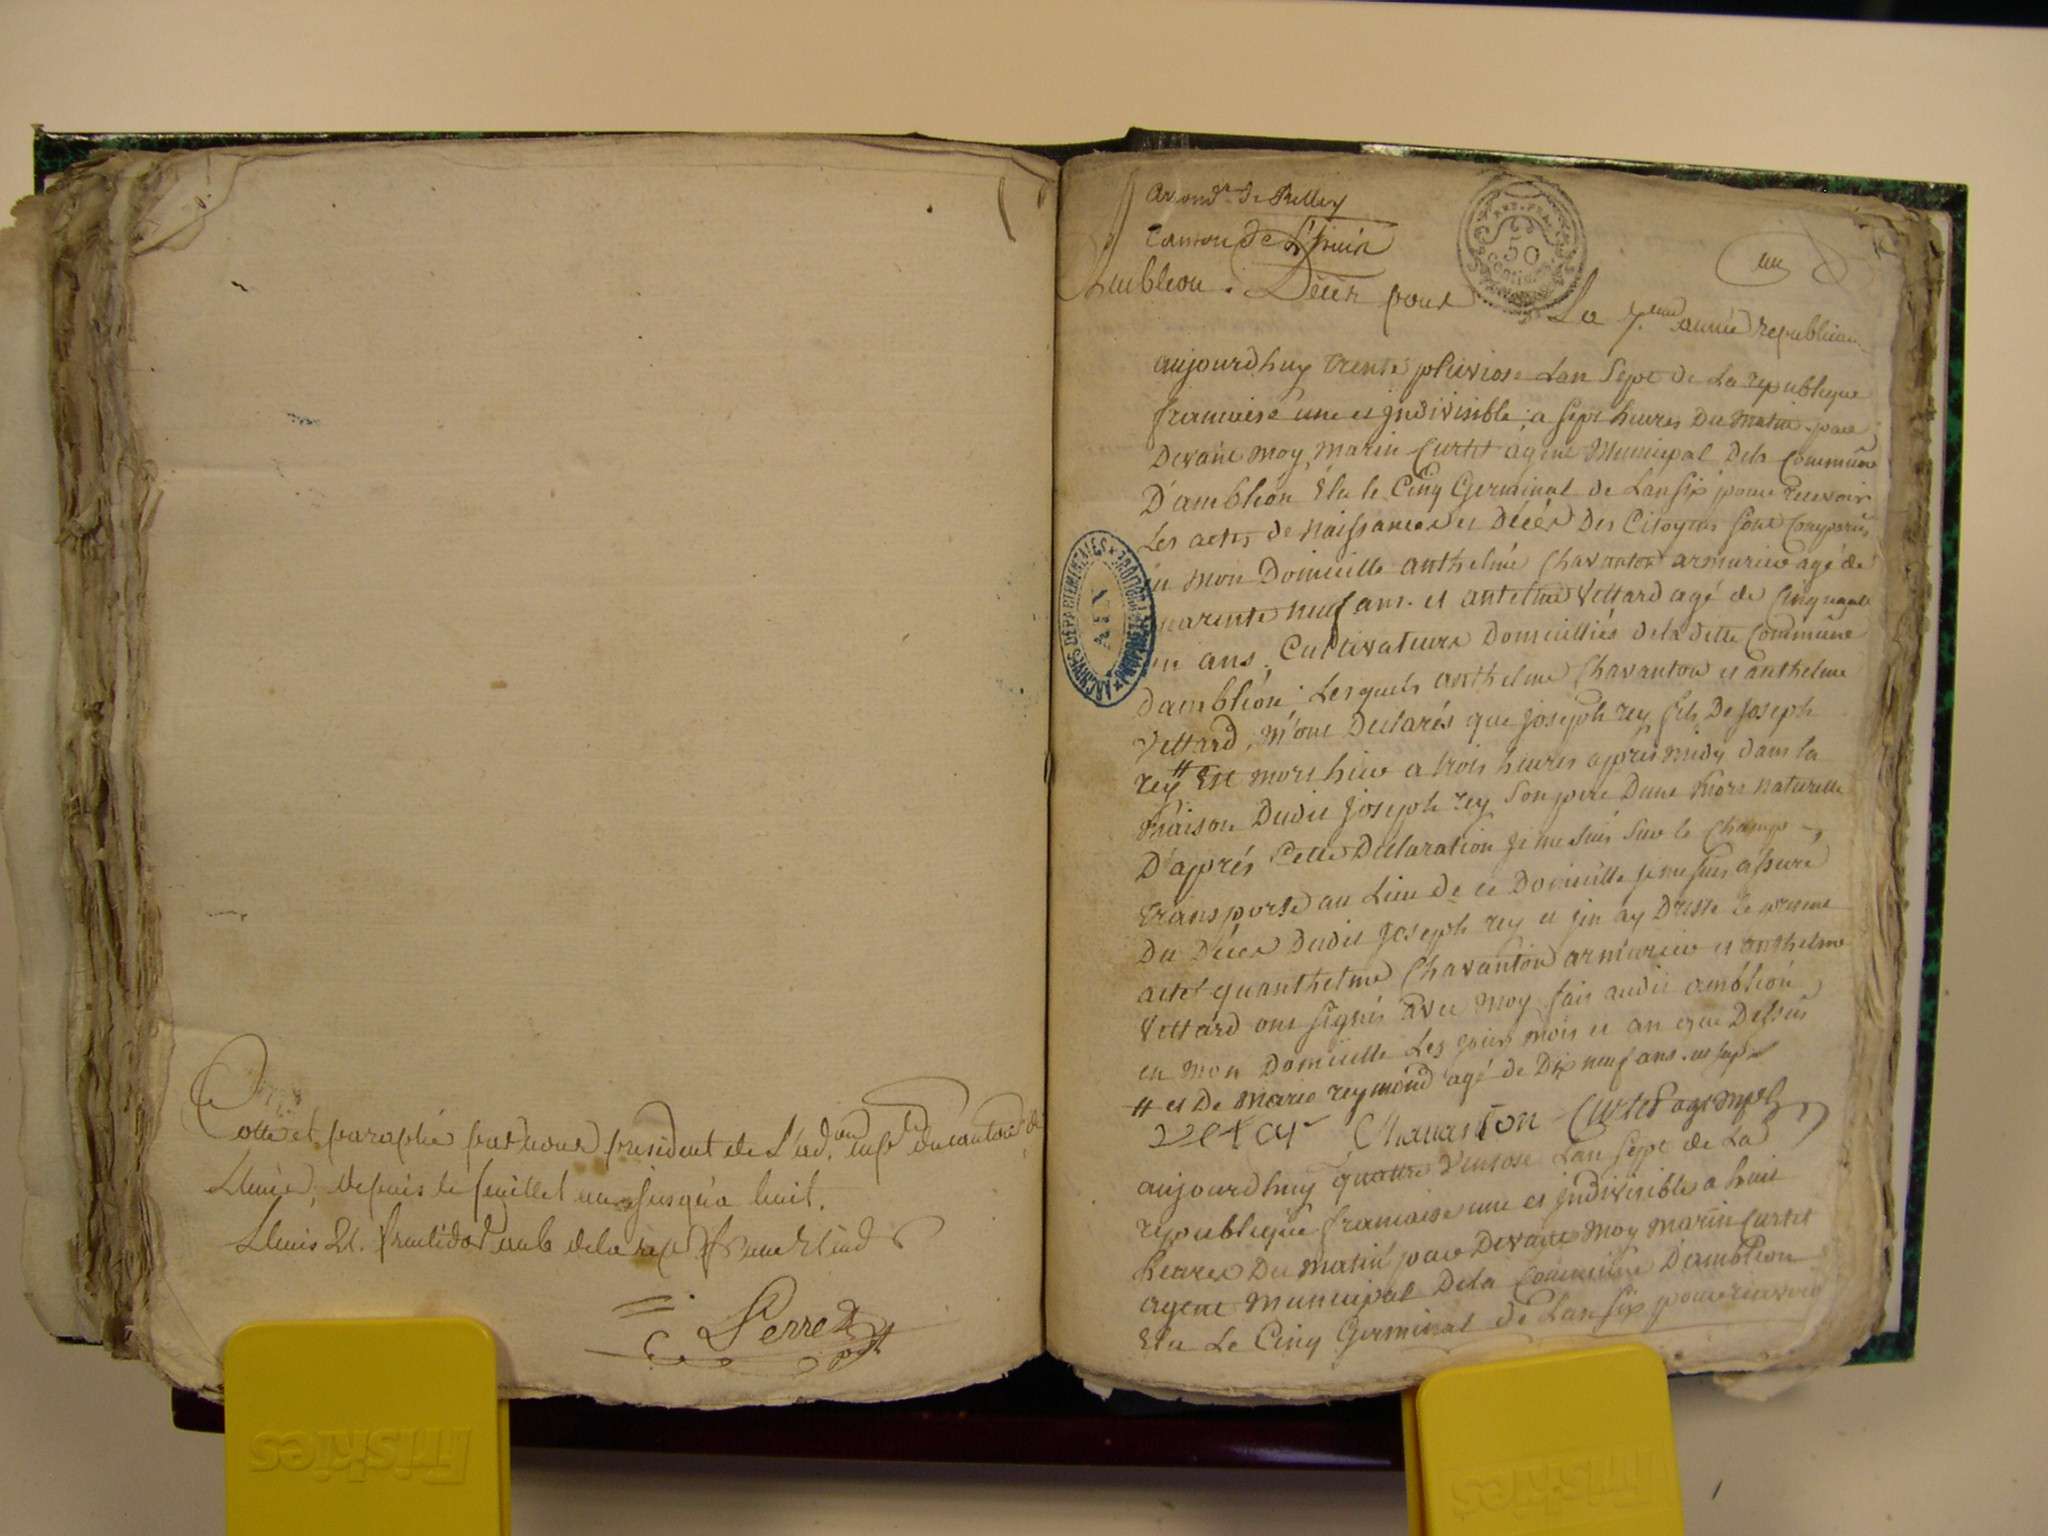 Cotté et paraphé par nous president de L'ad.on mup.le du canton de
Lhuis, depuis le feuillet un jusqu'a huit.
Lhuis 21. fructidor an 6 de la rep.
Perret
arond.t de Belley
canton de L'huis
Ambleon. Décès pour La 7.eme année republicaine
un
50
centimes
aujourdhuy trente pluviose Lan Sept de La republique
francaise une et jndivisible, a sept heures Du Matin par
Devant moy, Marin Curtet agent Municipal Dela Commune
D'ambléon Elu le Cinq Germinal de Lan Six pour recevoir
Les actes de Naissances et Décès Des Citoyens Sont Comparus
en mon Domicille anthelme Chavanton armurier agé de
quarente neuf ans. et antelme Vettard agé de Cinquante
un ans, Cultivateurs Domicilliés dela ditte Commune
dambléon, Lesquels anthelme Chavanton et anthelme
Vettard, m'ont Declarés que joseph rey fils De joseph
rey # Est mort hier a trois heures après midy dans la
Maison Dudit joseph rey Son pere Dune Mort naturelle
D'après Cette Déclaration je me Suis Sur le Champ
transporté au Lieu de ce Domicille je me suis assuré
Du Décès Dudit joseph rey et j'en ay Dressé le présent
acte qu'anthelme Chavanton armurier et anthelme
Vettard ont Signés avec moy fait audit ambléon
en mon Domicille Les jour mois et an que Dessus
# et De marie reymond agé de Dix neuf ans
Vetar Chavanton Curtet agt mpal
aujourdhuy quatre Ventose Lan Sept de La
republique francaise une et jndivisible a huit
heures Du Matin par Devant Moy Marin Curtet
agent Municipal Dela Commune D'ambléon
Elu Le Cinq Germinal de Lan Six pour recevoir
ARCHIVES DÉPARTEMENTALES
AIN